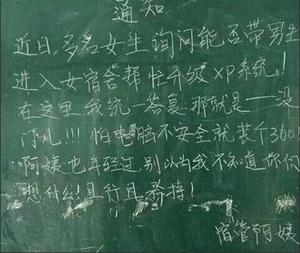 通知
近日多名女生询问能否带男生
进入女宿舍帮忙升级XP系统!
在这里我统一答复 那就是——没
门儿!!! 怕电脑不安全就装个360
阿姨也年轻过,别以为我不知道你们
想什么!且行且珍惜!
宿管阿姨